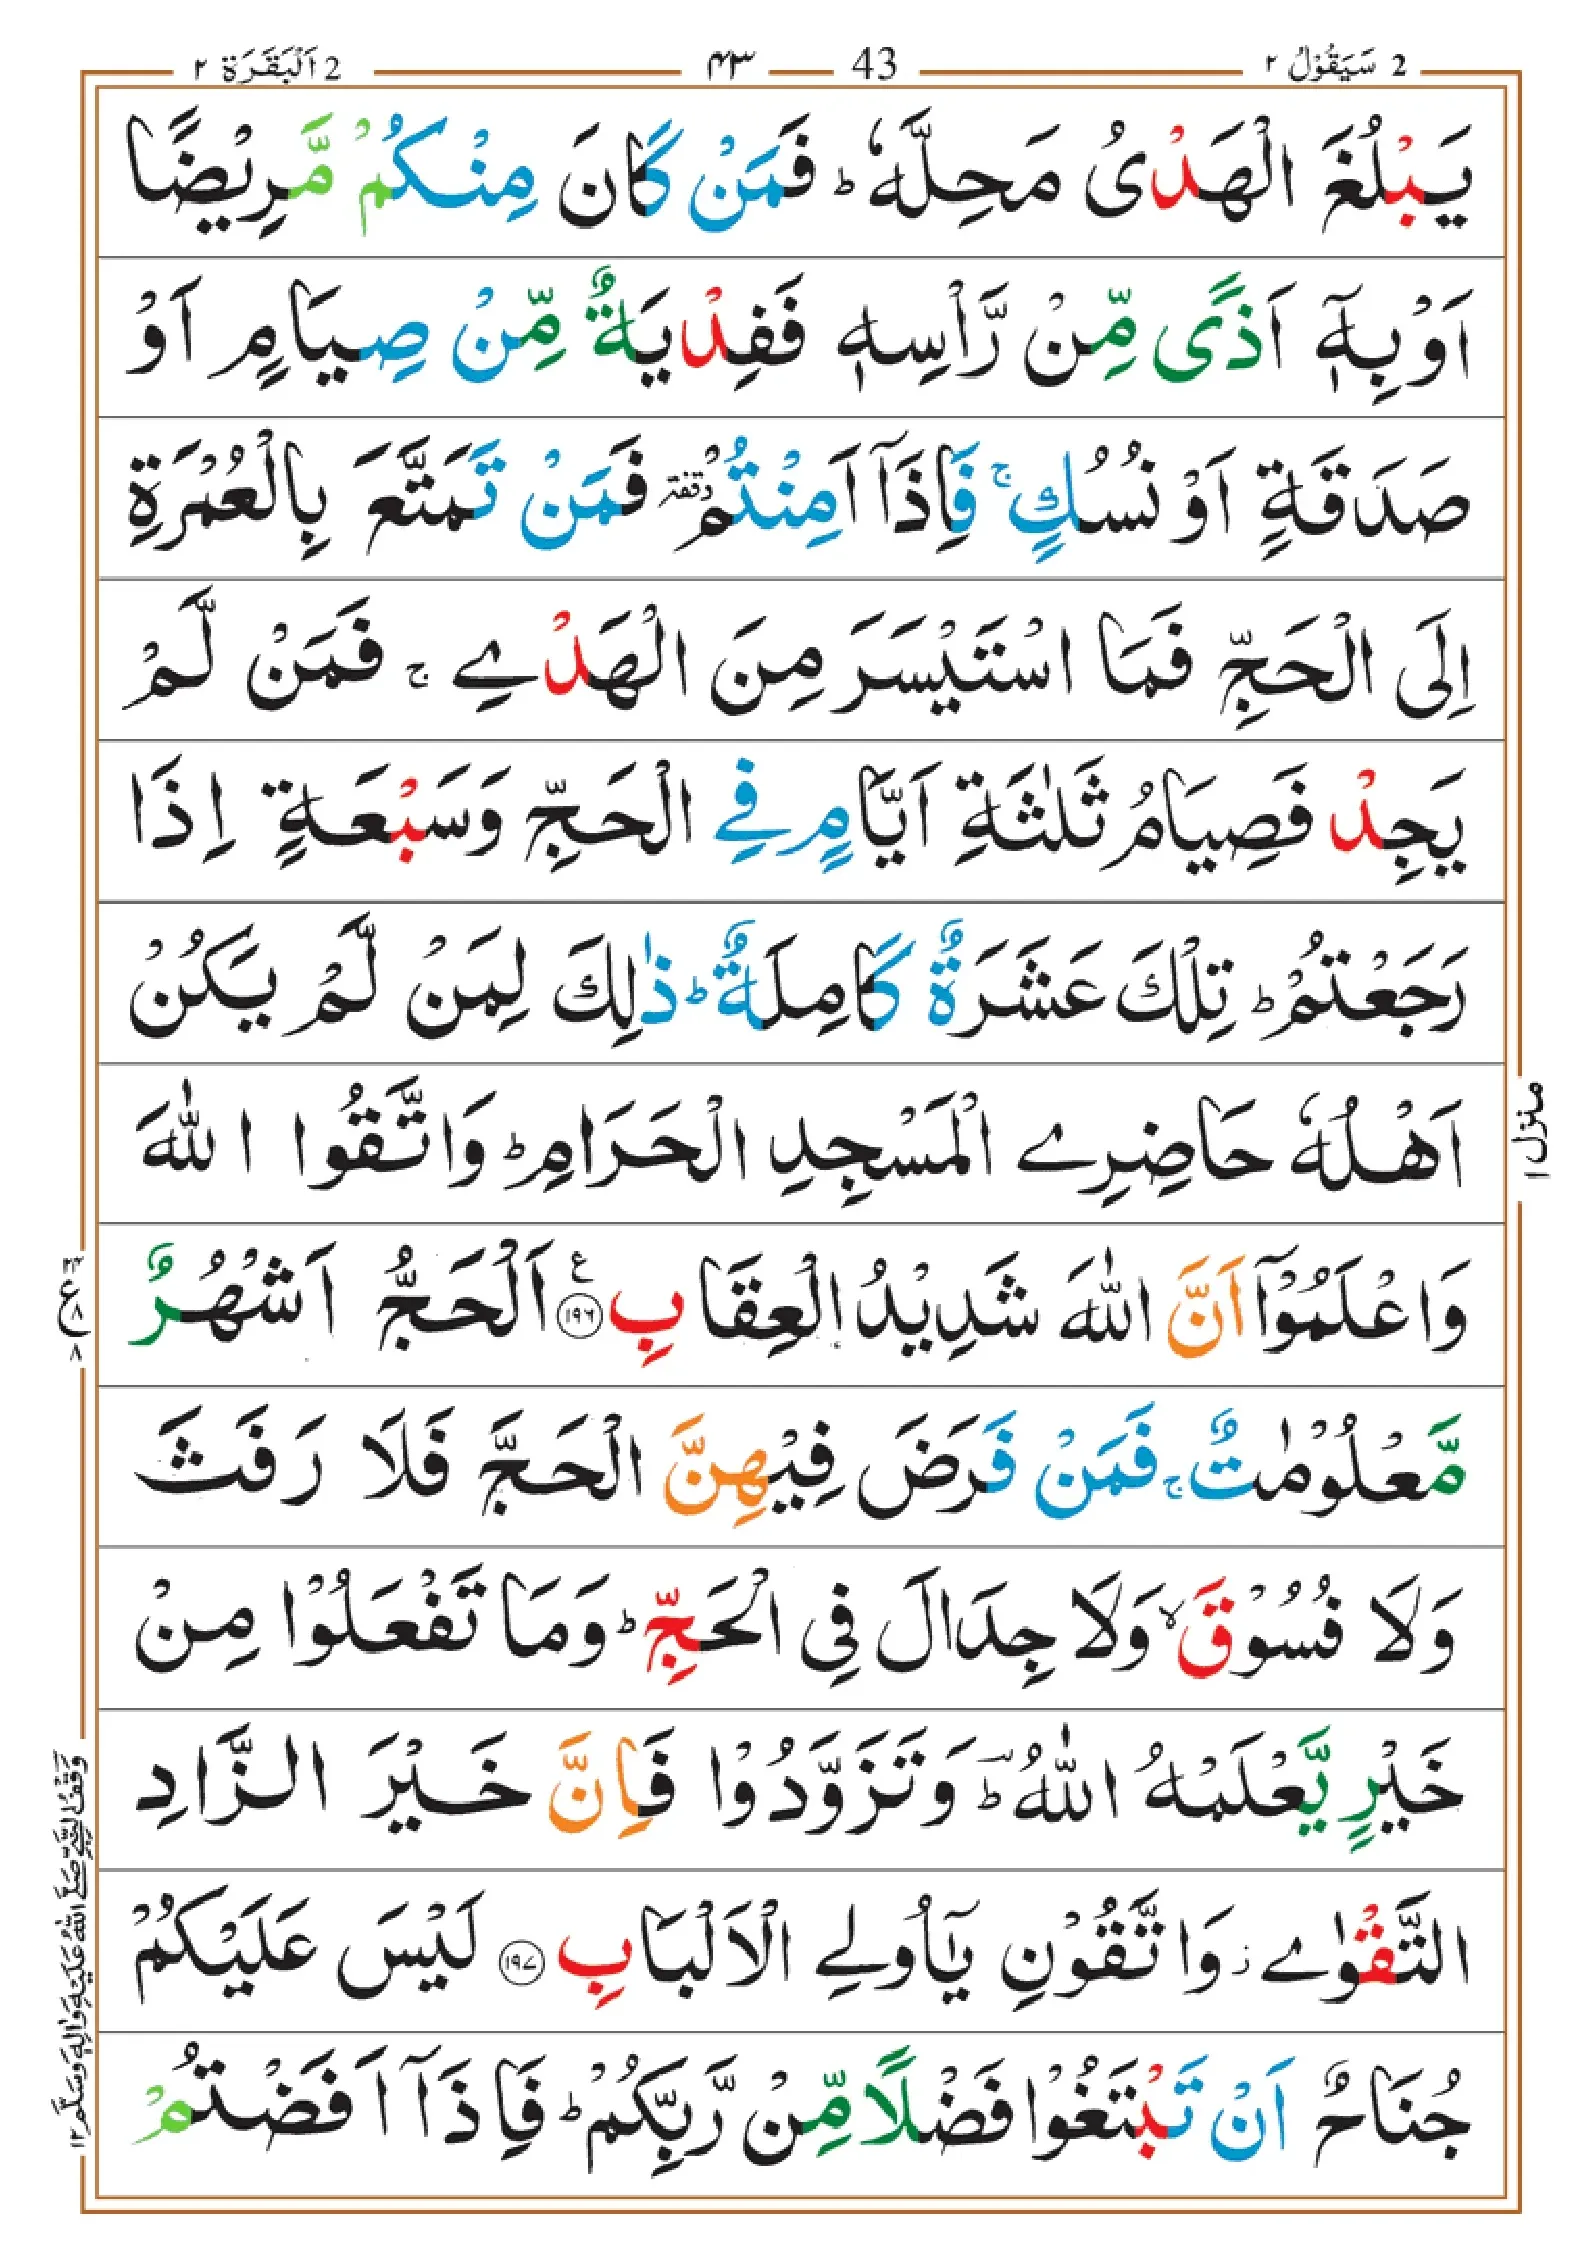 2 سَيَقُوْلُ ٢
43 ٤٣
2 اَلْبَقَرَة ٢
يَبْلُغَ الْهَدْىُ مَحِلَّهٗ ؕ فَمَنْ كَانَ مِنْكُمْ مَّرِيْضًا
اَوْ بِهٖۤ اَذًى مِّنْ رَّاْسِهٖ فَفِدْيَةٌ مِّنْ صِيَامٍ اَوْ
صَدَقَةٍ اَوْ نُسُكٍ ۚ فَاِذَاۤ اَمِنْتُمْ وقفة فَمَنْ تَمَتَّعَ بِالْعُمْرَةِ
اِلَى الْحَجِّ فَمَا اسْتَيْسَرَ مِنَ الْهَدْيِ ۚ فَمَنْ لَّمْ
يَجِدْ فَصِيَامُ ثَلٰثَةِ اَيَّامٍ فِي الْحَجِّ وَسَبْعَةٍ اِذَا
رَجَعْتُمْ ؕ تِلْكَ عَشَرَةٌ كَامِلَةٌ ؕ ذٰلِكَ لِمَنْ لَّمْ يَكُنْ
اَهْلُهٗ حَاضِرِي الْمَسْجِدِ الْحَرَامِ ؕ وَاتَّقُوا اللّٰهَ
وَاعْلَمُوْۤا اَنَّ اللّٰهَ شَدِيْدُ الْعِقَابِ ۧ ١٩٦ اَلْحَجُّ اَشْهُرٌ
مَّعْلُوْمٰتٌ ۚ فَمَنْ فَرَضَ فِيْهِنَّ الْحَجَّ فَلَا رَفَثَ
وَلَا فُسُوْقَ ۙ وَلَا جِدَالَ فِى الْحَجِّ ؕ وَمَا تَفْعَلُوْا مِنْ
خَيْرٍ يَّعْلَمْهُ اللّٰهُ ؕؔ وَتَزَوَّدُوْا فَاِنَّ خَيْرَ الزَّادِ
التَّقْوٰى ؗ وَاتَّقُوْنِ يٰۤاُولِي الْاَلْبَابِ ١٩٧ لَيْسَ عَلَيْكُمْ
جُنَاحٌ اَنْ تَبْتَغُوْا فَضْلًا مِّنْ رَّبِّكُمْ ؕ فَاِذَاۤ اَفَضْتُمْ
منزل ١
وَقْفُ النَّبِيِّ صَلَّى اللّٰهُ عَلَيْهِ وَاٰلِهٖ وَسَلَّمَ ١٢